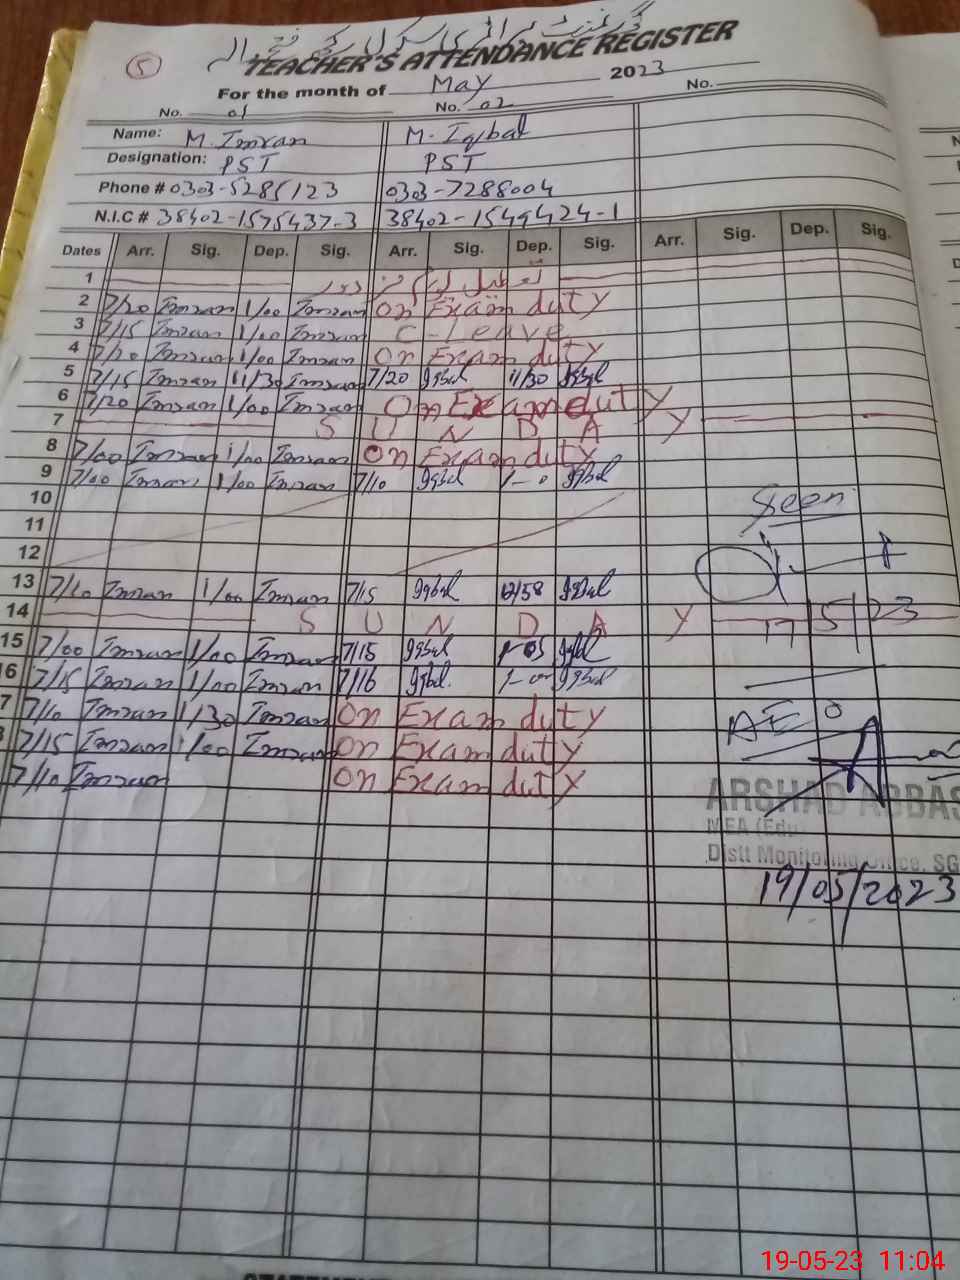 TEACHER'S ATTENDANCE REGISTER
5
For the month of May 2023
No. 01 No. 02 No.
Name: M. Imran M. Iqbal
Designation: PST PST
Phone # 0303-5285123 0303-7288004
N.I.C # 38402-1575437-3 38402-1549424-1
Dates Arr. Sig. Dep. Sig. Arr. Sig. Dep. Sig. Arr. Sig. Dep. Sig.
1
2 7/20 Imran 1/00 Imran on Exam duty
3 7/15 Imran 1/00 Imran C-Leave
4 7/20 Imran 1/00 Imran on Exam duty
5 7/15 Imran 11/30 Imran 7/20 Iqbal 11/30 Iqbal
6 7/20 Imran 1/00 Imran On Exam duty
7 S U N D A Y
8 7/00 Imran 1/00 Imran On Exam duty
9 7/00 Imran 1/00 Imran 7/10 Iqbal Iqbal
10 Seen
11
12
13 7/10 Imran 1/00 Imran 7/15 Iqbal 12/58 Iqbal
14 S U N D A Y 17/5/23
15 7/00 Imran 1/00 Imran 7/15 Iqbal Iqbal
16 7/15 Imran 1/00 Imran 7/16 Iqbal Iqbal
7 7/10 Imran 1/30 Imran On Exam duty AEO
7/15 Imran 1/00 Imran On Exam duty
7/10 Imran On Exam duty
ARSHAD ABBAS
MEA (Edu
Distt Monitoring Office, SG
19/05/2023
19-05-23 11:04